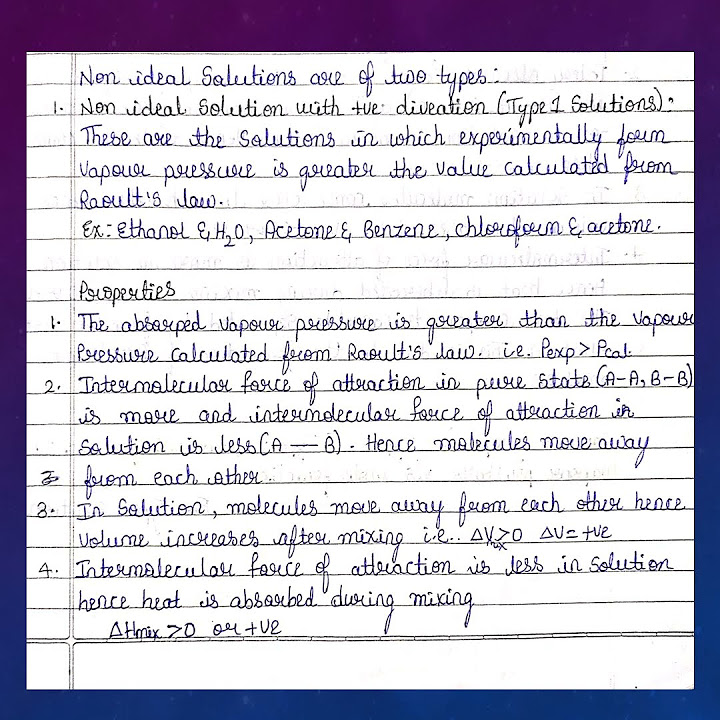 Non ideal Salutions are of two types:
1. Non ideal Solution with +ve diveation (Type 1 Solutions):
These are the Solutions in which experimentally foum
Vapour pressure is greater the value calculated from
Raoult's law.
Ex: Ethanol & H₂O, Acetone & Benzene, chloroform & acetone.
Properties
1. The absorped vapour pressure is greater than the vapour
Pressure calculated from Raoult's law. i.e. Pexp > Pcal.
2. Intermolecular force of attraction in pure State (A-A, B-B)
is more and intermolecular force of attraction in
solution is less (A — B). Hence molecules move away
from each other.
3. In Solution, molecules move away from each other hence
Volume increases after mixing i.e.. ΔVmix>0 ΔV=+ve
4. Intermolecular force of attraction is less in solution
hence heat is absorbed during mixing
ΔHmix >0 or +ve